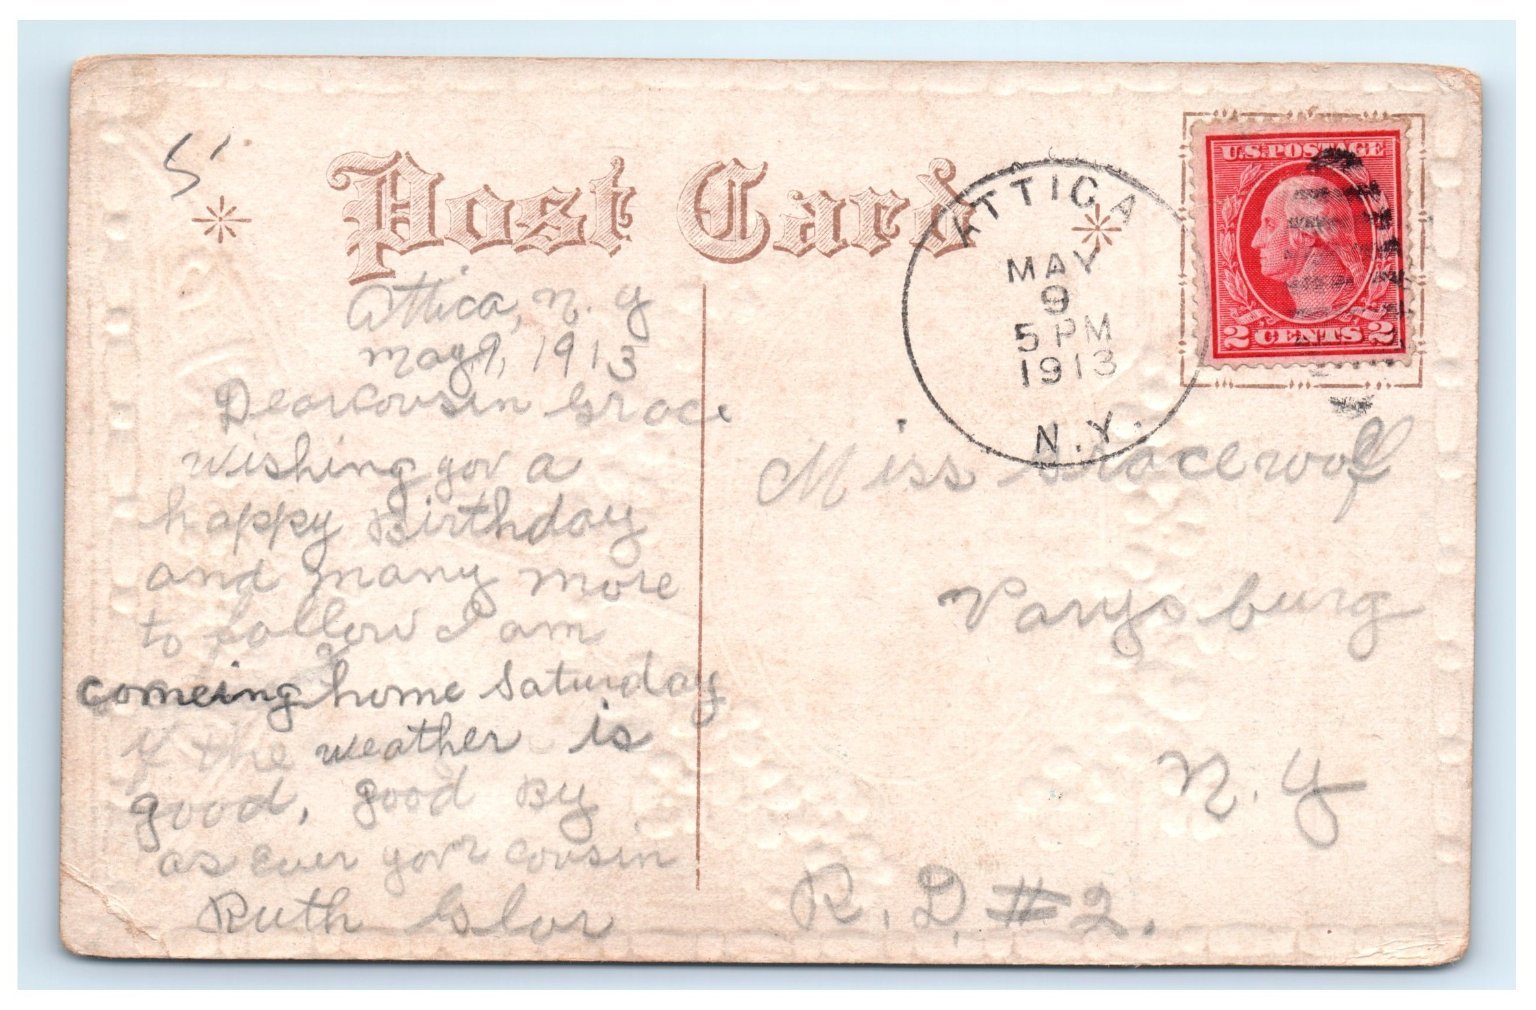 5
Post Card
ATTICA
MAY
9
5 PM
1913
N.Y.
U.S. POSTAGE
2 CENTS 2
Attica, N. Y
May 9, 1913
Dear Cousin Grace
wishing you a
happy Birthday
and many more
to follow I am
comeing home Saturday
if the weather is
good, good By
as ever your cousin
Ruth Glor
Miss Grace Wolf
Varysburg
N. Y
R. D. #2.